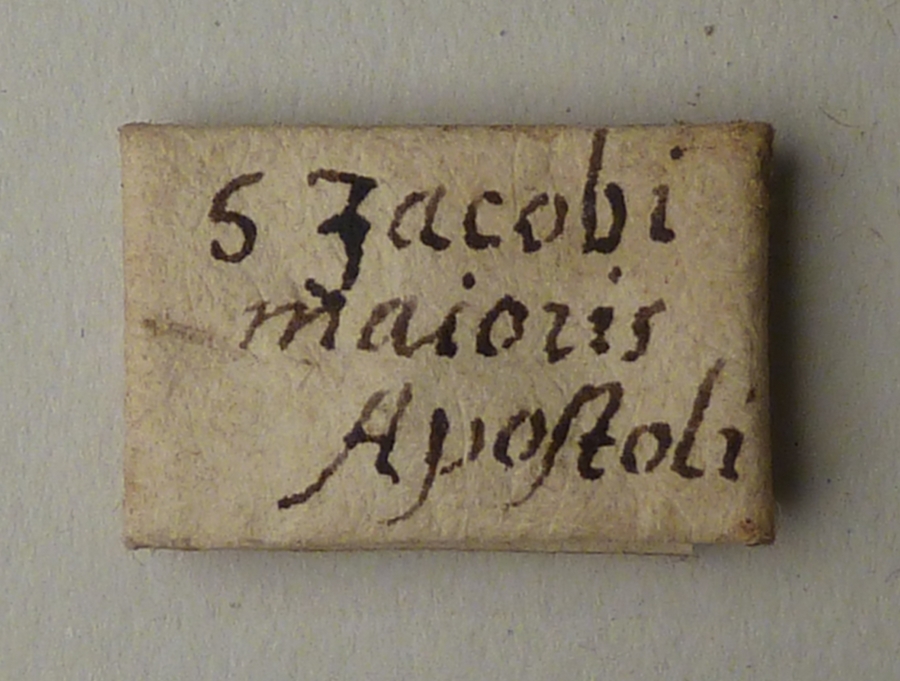 S Jacobi
maioris
Apoſtoli